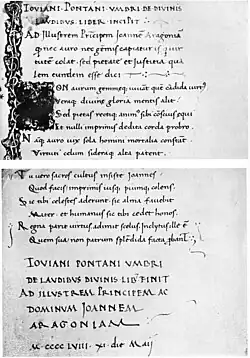 IOVIANI PONTANI VMBRI DE DIVINIS
LAVDIBVS LIBER INCIPIT
AD Illustrem Principem Joannem Aragoniã
qui nec auro nec gemis capiatur sed uir
tutẽ colat sed pietate et Justitia qua
lem eundem esse dici
NON aurum gemmeq; iuuãt que cãdida uirtꝰ
Veraq; diuinę gloria mentis alit
Sed pietas rectiq; animꝰ sibi cõsciꝰ equi
Et nulli imprimis dedita corda probro
Nãq; auro uix sola homini mortalia constãt
Virtuti celum sideraq; alta patent
Tu uero sacros cultus insiste Joannes
Quod facis imprimis iusq; piumq; colens
Sic tibi celestes aderunt sic alma fauebit
Mater et humanus sic tibi cedet honos
Regna parit uirtus
Quem sua non patrum splẽdida facta
IOVIANI PONTANI VMBRI
DE LAVDIBVS DIVINIS LIB FINIT
AD ILLVSTREM PRINCIPEM AC
DOMINVM IOANNEM
ARAGONIAM
M CCCC LVIII XI DIE MAIJ